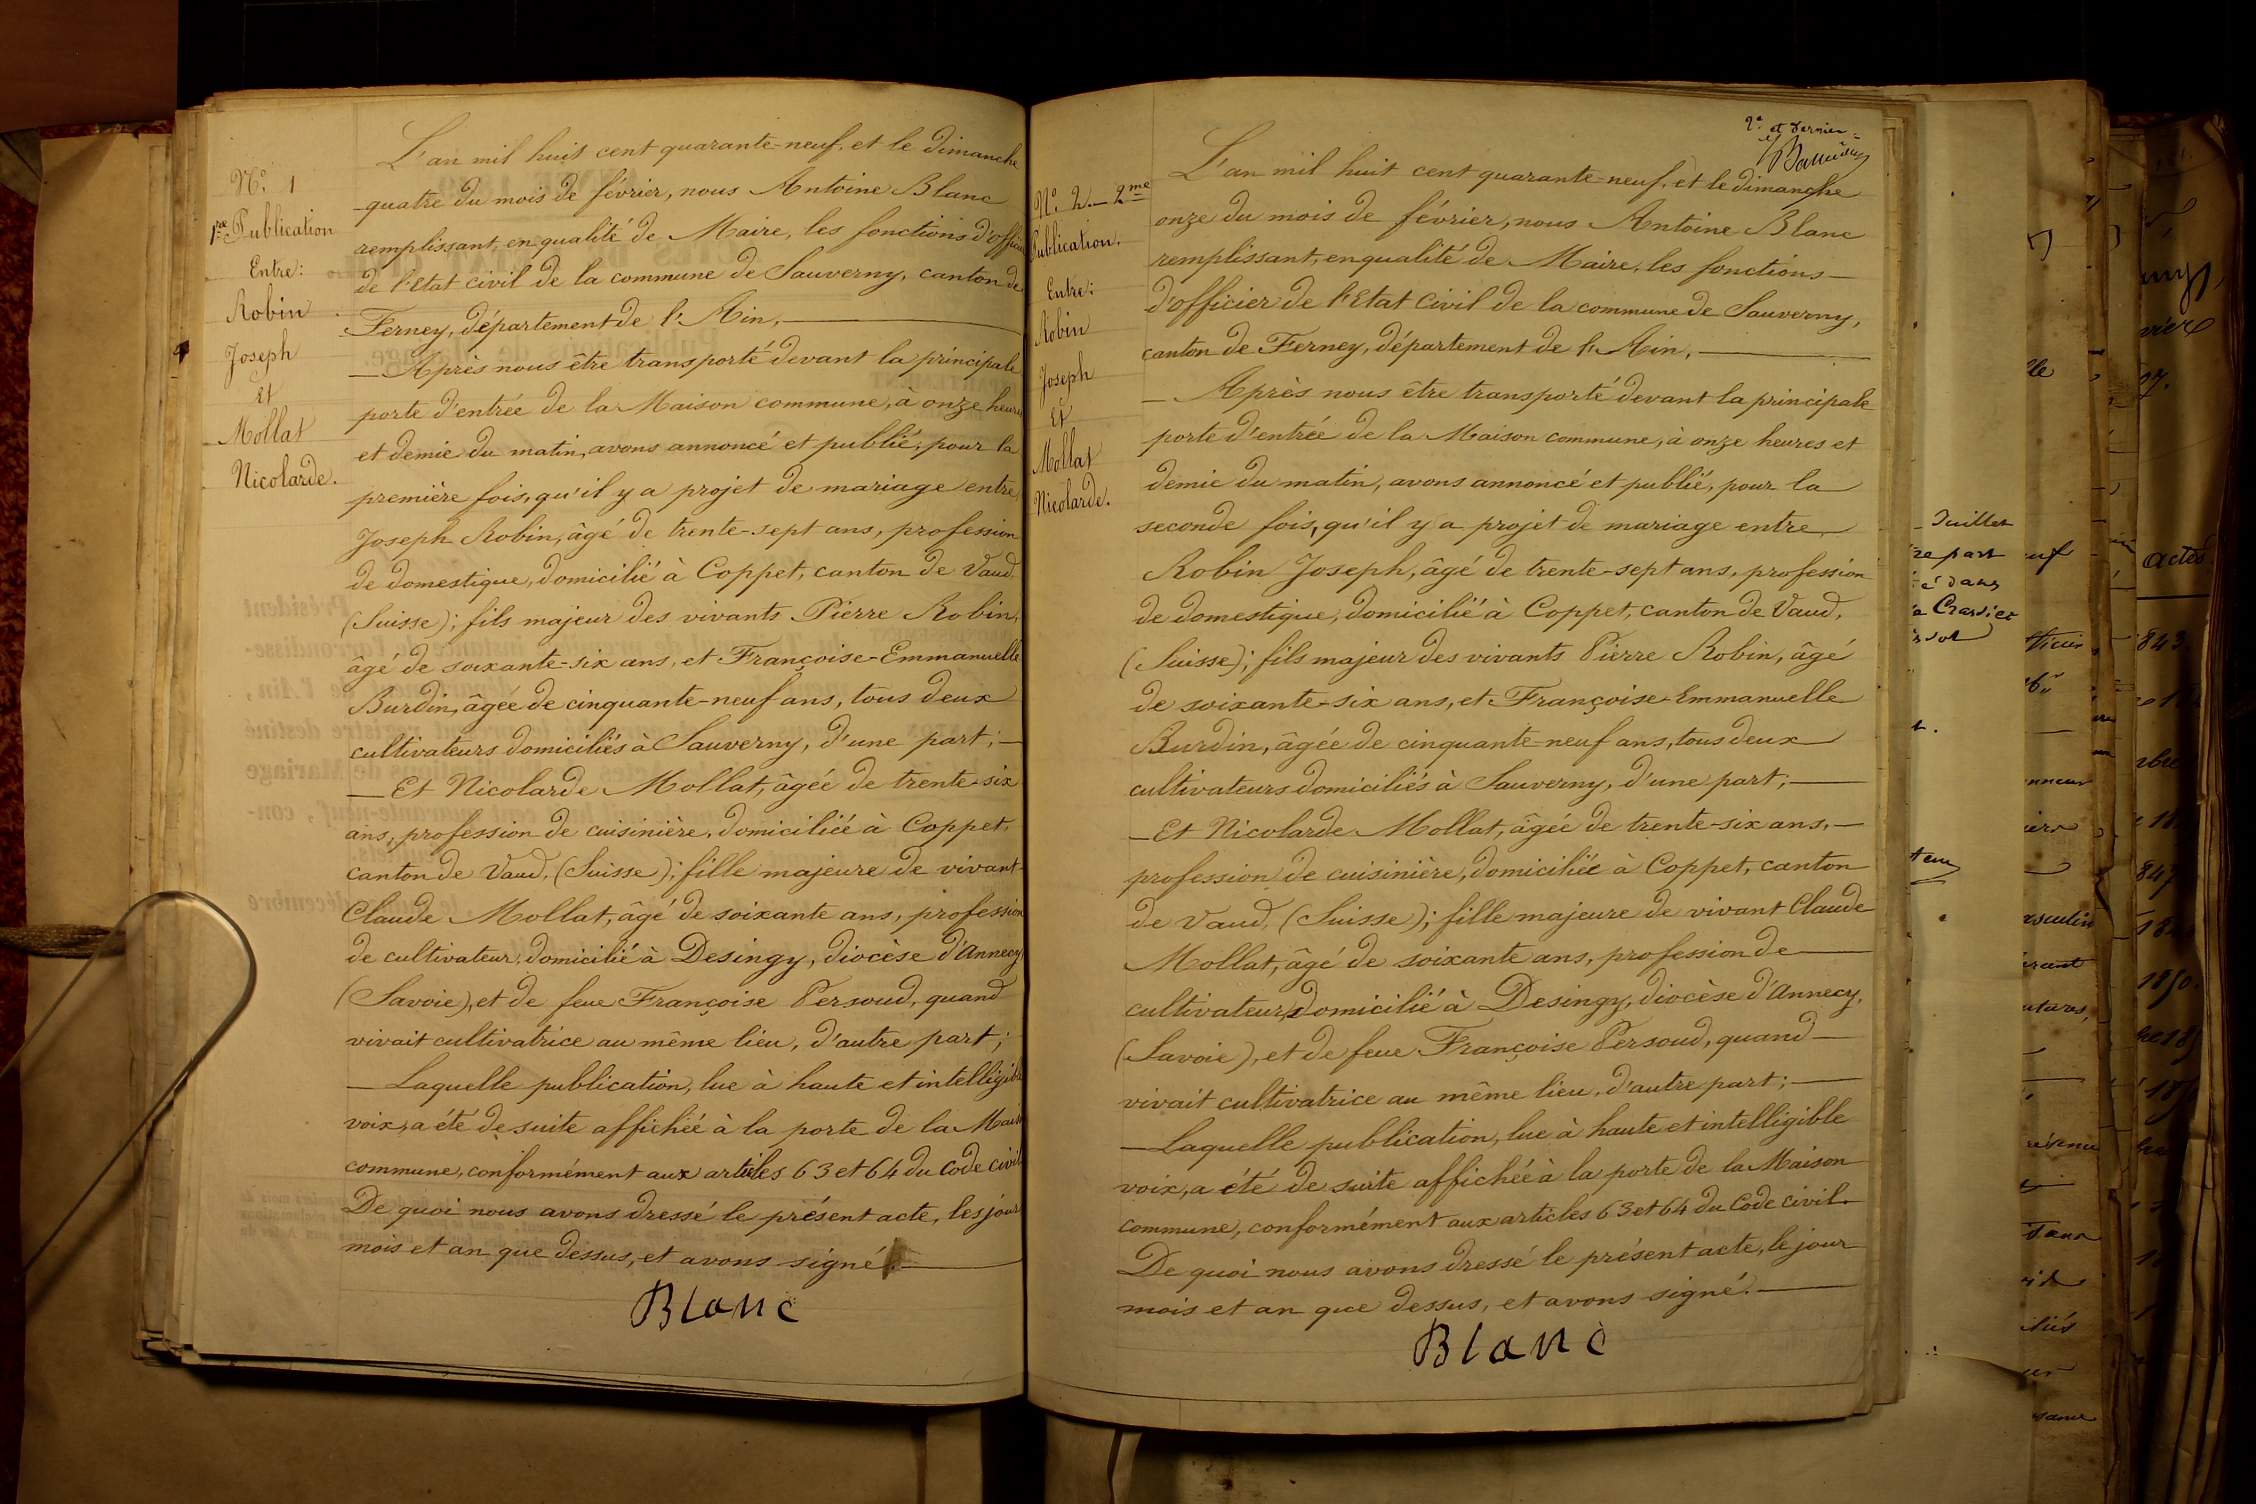 N.º 1
1.re Publication
Entre:
Robin
Joseph
Et
Mollat
Nicolarde.
L'an mil huit cent quarante-neuf, et le dimanche
quatre du mois de février, nous Antoine Blanc
remplissant, en qualité de Maire, les fonctions d'officier
de l'Etat civil de la commune de Sauverny, canton de
Ferney, département de l'Ain.
— Après nous être transporté devant la principale
porte d'entrée de la Maison commune, à onze heures
et demie du matin, avons annoncé et publié, pour la
première fois, qu'il y a projet de mariage entre
Joseph Robin, âgé de trente-sept ans, profession
de domestique, domicilié à Coppet, canton de Vaud
(Suisse); fils majeur des vivants Pierre Robin,
âgé de soixante-six ans, et Françoise-Emmanuelle
Burdin, âgée de cinquante-neuf ans, tous deux
cultivateurs domiciliés à Sauverny, d'une part; —
— Et Nicolarde Mollat, âgée de trente-six
ans, profession de cuisinière, domiciliée à Coppet,
canton de Vaud, (Suisse); fille majeure de vivant
Claude Mollat, âgé de soixante ans, profession
de cultivateur, domicilié à Desingy, diocèse d'Annecy
(Savoie), et de feue Françoise Persoud, quand
vivait cultivatrice au même lieu, d'autre part;
— Laquelle publication, lue à haute et intelligible
voix, a été de suite affichée à la porte de la Maison
commune, conformément aux articles 63 et 64 du Code civil
De quoi nous avons dressé le présent acte, les jour
mois et an que dessus, et avons signé. —
Blanc
2.e et dernier
N.º 2. — 2.me
Publication.
Entre:
Robin
Joseph
Et
Mollat
Nicolarde.
L'an mil huit cent quarante-neuf, et le dimanche
onze du mois de février, nous Antoine Blanc
remplissant, en qualité de Maire, les fonctions —
d'officier de l'Etat civil de la commune de Sauverny,
canton de Ferney, département de l'Ain. —
— Après nous être transporté devant la principale
porte d'entrée de la Maison commune, à onze heures et
demie du matin, avons annoncé et publié, pour la
seconde fois, qu'il y a projet de mariage entre
Robin Joseph, âgé de trente-sept ans, profession
de domestique, domicilié à Coppet, canton de Vaud,
(Suisse); fils majeur des vivants Pierre Robin, âgé
de soixante-six ans, et Françoise-Emmanuelle
Burdin, âgée de cinquante-neuf ans, tous deux
cultivateurs domiciliés à Sauverny, d'une part; —
— Et Nicolarde Mollat, âgée de trente-six ans, —
profession de cuisinière, domiciliée à Coppet, canton
de Vaud, (Suisse); fille majeure de vivant Claude
Mollat, âgé de soixante ans, profession de —
cultivateur, domicilié à Desingy, diocèse d'Annecy,
(Savoie), et de feue Françoise Persoud, quand —
vivait cultivatrice au même lieu, d'autre part; —
— Laquelle publication, lue à haute et intelligible
voix, a été de suite affichée à la porte de la Maison
commune, conformément aux articles 63 et 64 du Code civil.
De quoi nous avons dressé le présent acte, le jour
mois et an que dessus, et avons signé. —
Blanc
Juillet
actes